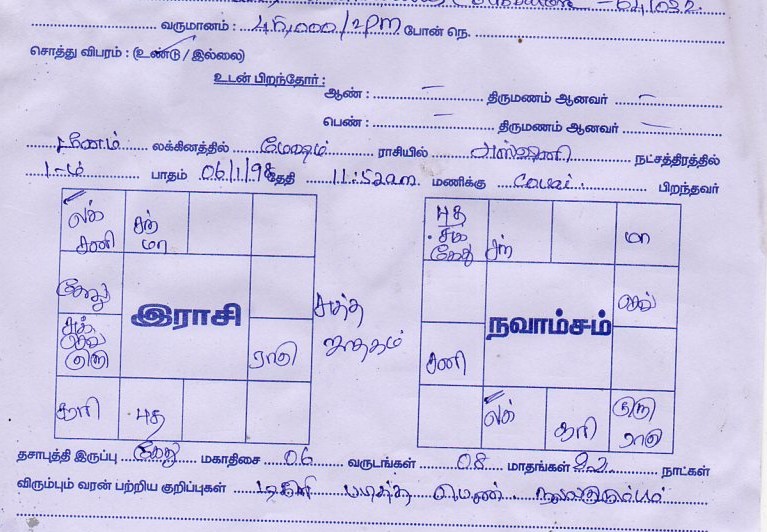 வருமானம் : 45,000/2PM போன் நெ.
சொத்து விபரம் : (உண்டு / இல்லை)
உடன் பிறந்தோர் :
ஆண் : – திருமணம் ஆனவர் –
பெண் : – திருமணம் ஆனவர் –
லக்கினத்தில் மேஷம் ராசியில் அஸ்வினி நட்சத்திரத்தில்
1-ம் பாதம் 06/1/98 தேதி 11:52am மணிக்கு கோவை பிறந்தவர்
லக் சனி
சந் மா
கேது
சுக் செவ் குரு
இராசி
ராகு
சூரி
புத
சுத்த ஜாதகம்
புத சுக் கேது
சந்
மா
செவ்
நவாம்சம்
சனி
லக்
சூரி
குரு ராகு
தசாபுத்தி இருப்பு கேது மகாதிசை 06 வருடங்கள் 08 மாதங்கள் 22 நாட்கள்
விரும்பும் வரன் பற்றிய குறிப்புகள் டிகிரி படித்த பெண்